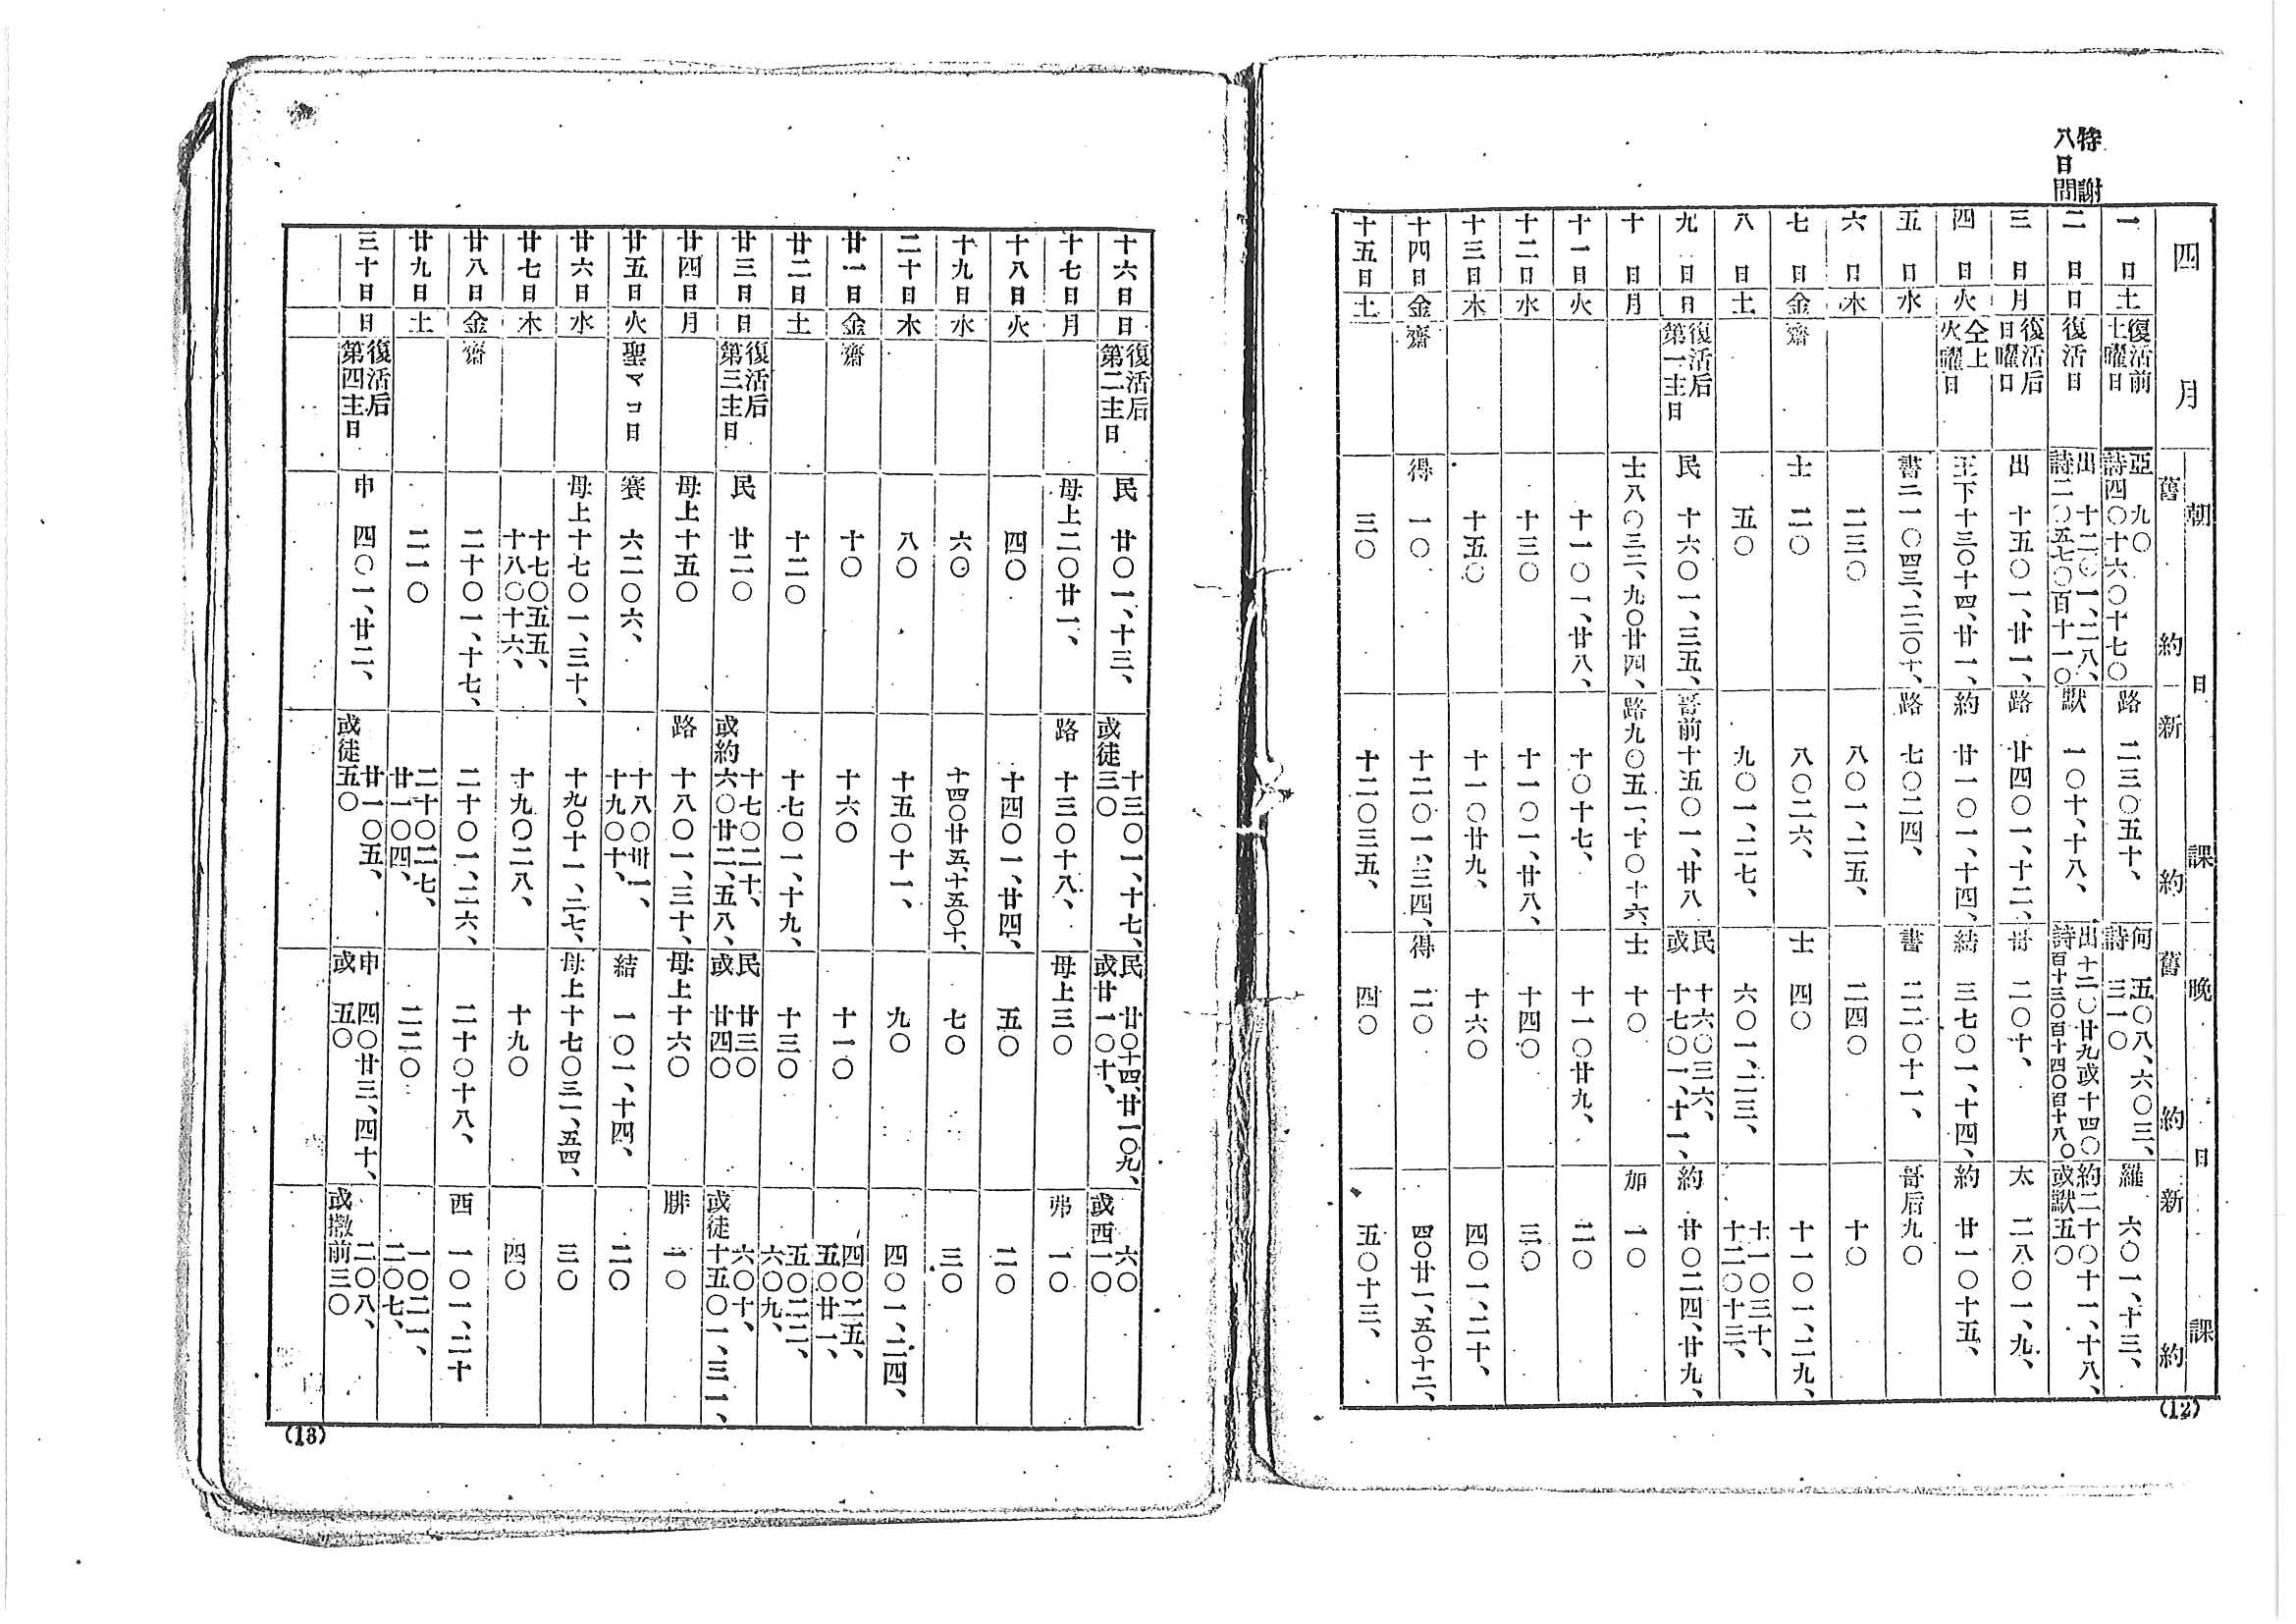 特謝
八日間
四月
朝日課
晩日課
舊約
新約
舊約
新約
一日 土 復活前土曜日 亞九〇 詩四〇十六〇十七〇 路二三〇五十、 何五〇八、六〇三、 詩三一〇 羅六〇一、十三、
二日 日 復活日 出十二〇一、二八、 詩二〇五七〇百十一〇 默一〇十、十八、 出十二〇廿九或十四〇 詩百十三〇百十四〇百十八〇 約二十〇十一、十八、 或默五〇
三日 月 復活后日曜日 出十五〇一、廿一、 路廿四〇一、十二、 哥二〇十、 太二八〇一、九、
四日 火 仝上火曜日 王下十三〇十四、廿一、 約廿一〇一、十四、 結三七〇一、十四、 約廿一〇十五、
五日 水 書二一〇四三、二二〇十、 路七〇二四、 書二二〇十一、 哥后九〇
六日 木 二三〇 八〇一、二五、 二四〇 十〇
七日 金 齋 士二〇 八〇二六、 士四〇 十一〇一、二九、
八日 土 五〇 九〇一、二七、 六〇一、二三、 十一〇三十、十二〇十三、
九日 日 復活后第一主日 民十六〇一、三五、 哥前十五〇一、廿八 民十六〇三六、 或十七〇一、十一、 約廿〇二四、廿九、
十日 月 士八〇三二、九〇廿四、 路九〇五一、十〇十六、 士十〇 加一〇
十一日 火 十一〇一、廿八、 十〇十七、 十一〇廿九、 二〇
十二日 水 十三〇 十一〇一、廿八、 十四〇 三〇
十三日 木 十五〇 十一〇廿九、 十六〇 四〇一、二十、
十四日 金 齋 得一〇 十二〇一、三四、 得二〇 四〇廿一、五〇十二、
十五日 土 三〇 十二〇三五、 四〇 五〇十三、
(12)
十六日 日 復活后第二主日 民廿〇一、十三、 十三〇一、十七、 或徒三〇 民廿〇十四、廿一〇九、 或廿一〇十、 六〇 或西一〇
十七日 月 母上二〇廿一、 路十三〇十八、 母上三〇 弗一〇
十八日 火 四〇 十四〇一、廿四、 五〇 二〇
十九日 水 六〇 十四〇廿五、十五〇十、 七〇 三〇
二十日 木 八〇 十五〇十一、 九〇 四〇一、二四、
廿一日 金 齋 十〇 十六〇 十一〇 四〇二五、五〇廿一、
廿二日 土 十二〇 十七〇一、十九、 十三〇 五〇二二、六〇九、
廿三日 日 復活后第三主日 民廿二〇 十七〇二十、 或約六〇廿二、五八、 民廿三〇 或廿四〇 六〇十、 或徒十五〇一、三一、
廿四日 月 母上十五〇 路十八〇一、三十、 母上十六〇 腓一〇
廿五日 火 聖マコ日 賽六二〇六、 十八〇卅一、十九〇十、 結一〇一、十四、 二〇
廿六日 水 母上十七〇一、三十、 十九〇十一、二七、 母上十七〇三一、五四、 三〇
廿七日 木 十七〇五五、十八〇十六、 十九〇二八、 十九〇 四〇
廿八日 金 齋 二十〇一、十七、 二十〇一、二六、 二十〇十八、 西一〇一、二十
廿九日 土 二一〇 二十〇二七、廿一〇四、 二二〇 一〇二一、二〇七、
三十日 日 復活后第四主日 申四〇一、廿二、 廿一〇五、 或徒五〇 申四〇廿三、四十、 或五〇 二〇八、 或撒前三〇
(13)